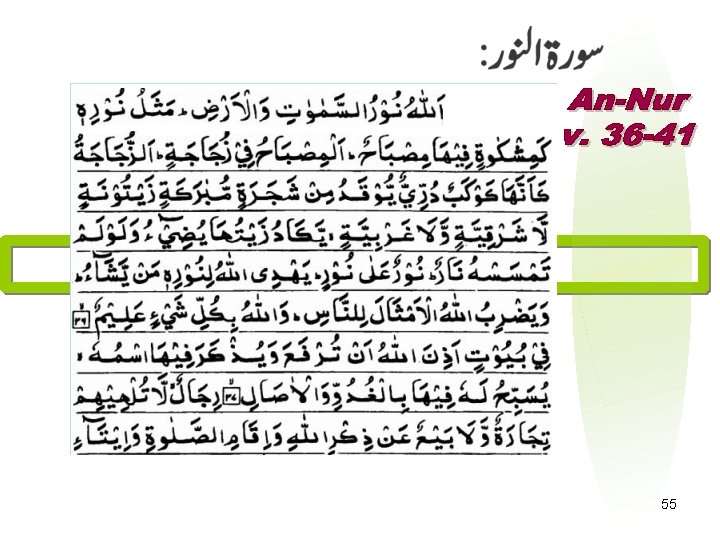 سورة النور:
An-Nur
v. 36-41
اَللّٰهُ نُوْرُ السَّمٰوٰتِ وَالْاَرْضِ ؕ مَثَلُ نُوْرِهٖ
كَمِشْكٰوةٍ فِيْهَا مِصْبَاحٌ ؕ اَلْمِصْبَاحُ فِيْ زُجَاجَةٍ ؕ اَلزُّجَاجَةُ
كَاَنَّهَا كَوْكَبٌ دُرِّيٌّ يُّوْقَدُ مِنْ شَجَرَةٍ مُّبٰرَكَةٍ زَيْتُوْنَةٍ
لَّا شَرْقِيَّةٍ وَّلَا غَرْبِيَّةٍ ۙ يَّكَادُ زَيْتُهَا يُضِيْٓءُ وَلَوْ لَمْ
تَمْسَسْهُ نَارٌ ؕ نُوْرٌ عَلٰى نُوْرٍ ؕ يَهْدِى اللّٰهُ لِنُوْرِهٖ مَنْ يَّشَآءُ ؕ
وَيَضْرِبُ اللّٰهُ الْاَمْثَالَ لِلنَّاسِ ؕ وَاللّٰهُ بِكُلِّ شَيْءٍ عَلِيْمٌ ۙ ٣٦
فِيْ بُيُوْتٍ اَذِنَ اللّٰهُ اَنْ تُرْفَعَ وَيُذْكَرَ فِيْهَا اسْمُهٗ ۙ
يُسَبِّحُ لَهٗ فِيْهَا بِالْغُدُوِّ وَالْاٰصَالِ ۙ ٣٧ رِجَالٌ ۙ لَّا تُلْهِيْهِمْ
تِجَارَةٌ وَّلَا بَيْعٌ عَنْ ذِكْرِ اللّٰهِ وَاِقَامِ الصَّلٰوةِ وَاِيْتَآءِ
55